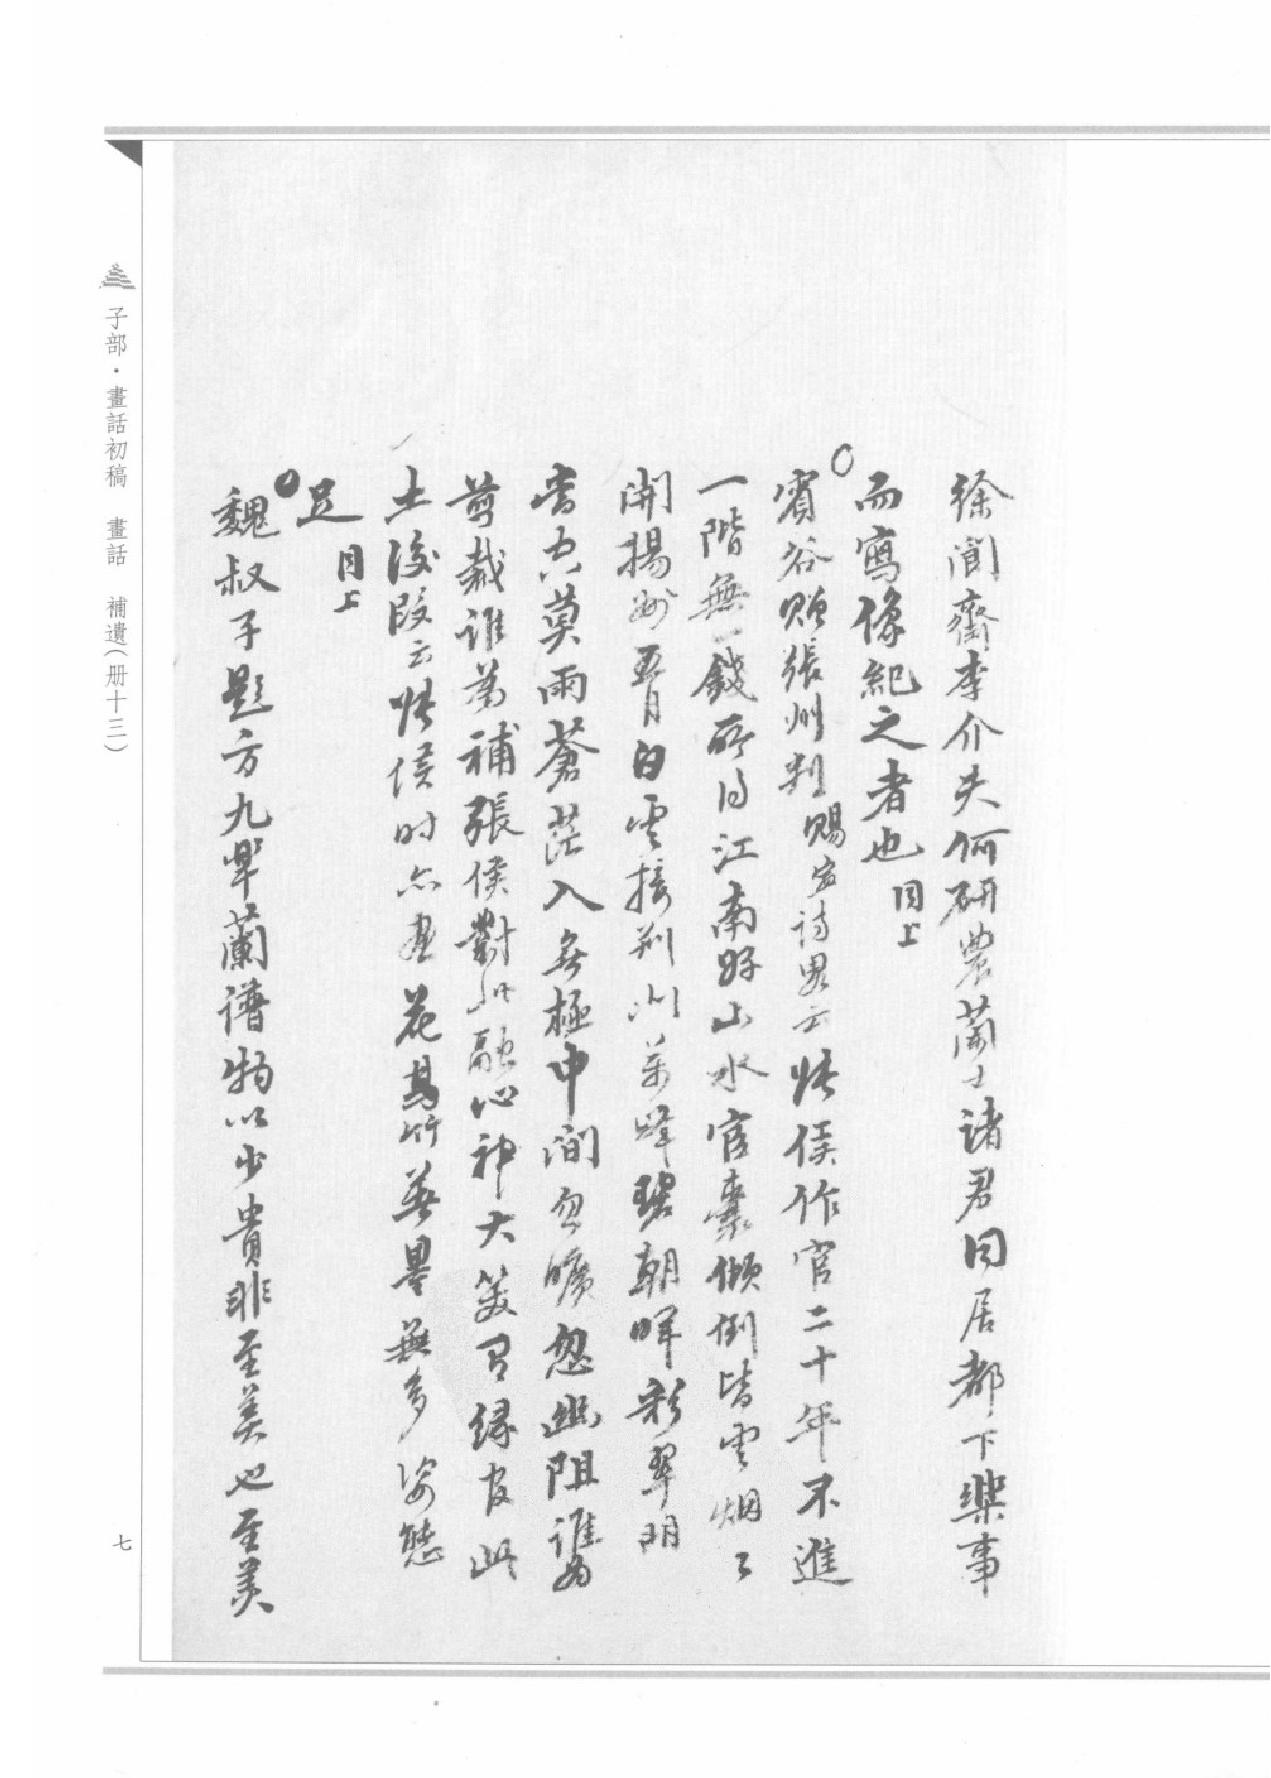 徐閬齋李介夫何硏農蘭士諸君同居都下樂事
而寫像紀之者也同上
○賓谷贈張州判賜寗詩畧云張侯作官二十年不進
一階無一錢所得江南好山水官橐傾倒皆雲烟〻
開揚州五月白雲接荆川萬峰碧朝暉彩翠明
當空莫雨蒼茫入無極中間忽曠忽幽阻誰為
剪裁誰為補張侯對此融心神大笑君緣官此
土後段云張侯時亦畫花葛竹無畢無多姿態
足同上
○魏叔子題方九畢蘭譜物以少貴非至美也至美
子部·畫話初稿 畫話 補遺（册十三）
七